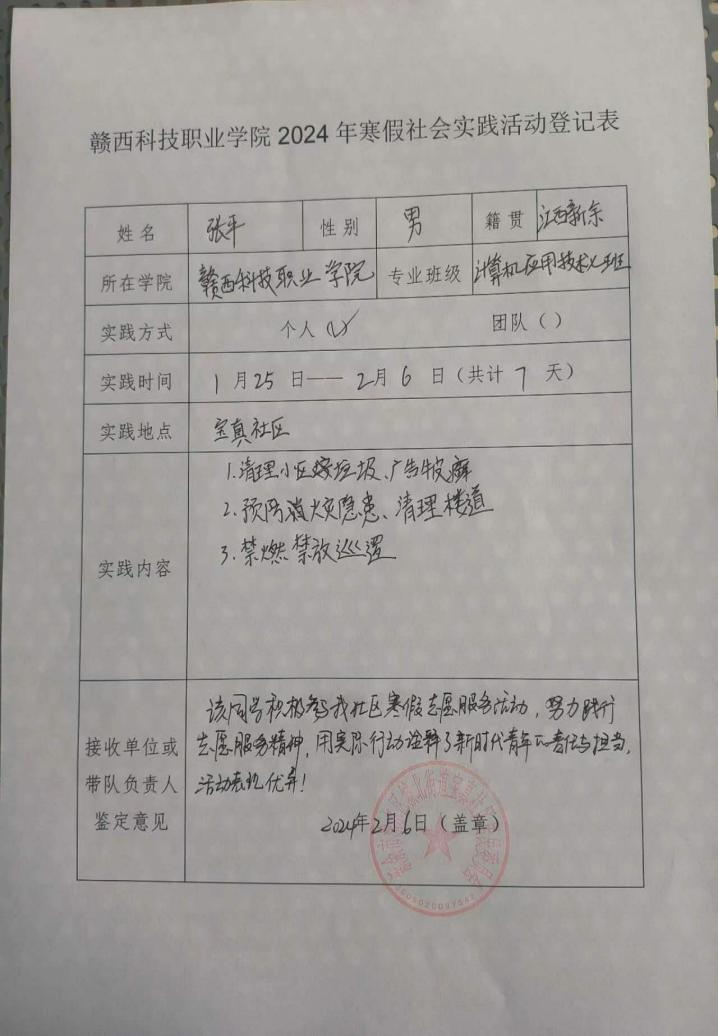 赣西科技职业学院 2024 年寒假社会实践活动登记表
姓名 张平 性别 男 籍贯 江西新余
所在学院 赣西科技职业学院 专业班级 计算机应用技术2班
实践方式 个人(√) 团队( )
实践时间 1月25日——2月6日(共计7天)
实践地点 宝真社区
实践内容
1.清理小区垃圾、广告牛皮癣
2.预防消灾隐患、清理楼道
3.禁燃禁放巡逻
接收单位或
带队负责人
鉴定意见
该同学积极参与我社区寒假志愿服务活动,努力践行
志愿服务精神,用实际行动诠释了新时代青年的责任与担当,
活动表现优异!
2024年2月6日(盖章)